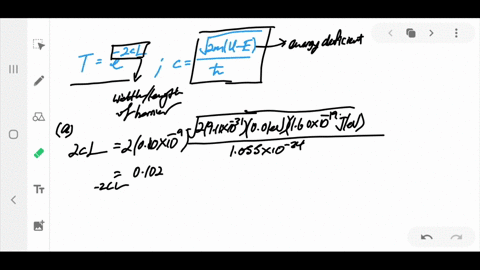 T = e^{-2cL} ; c = \frac{\sqrt{2m(U-E)}}{\hbar} → energy deficient
width/length
of barrier
(a)
2cL = 2(0.10×10^{-9}) \frac{\sqrt{2(9.11×10^{-31})(0.01eV)(1.60×10^{-19} J/eV)}}{1.055×10^{-34}}
= 0.102
-2cL
Tт